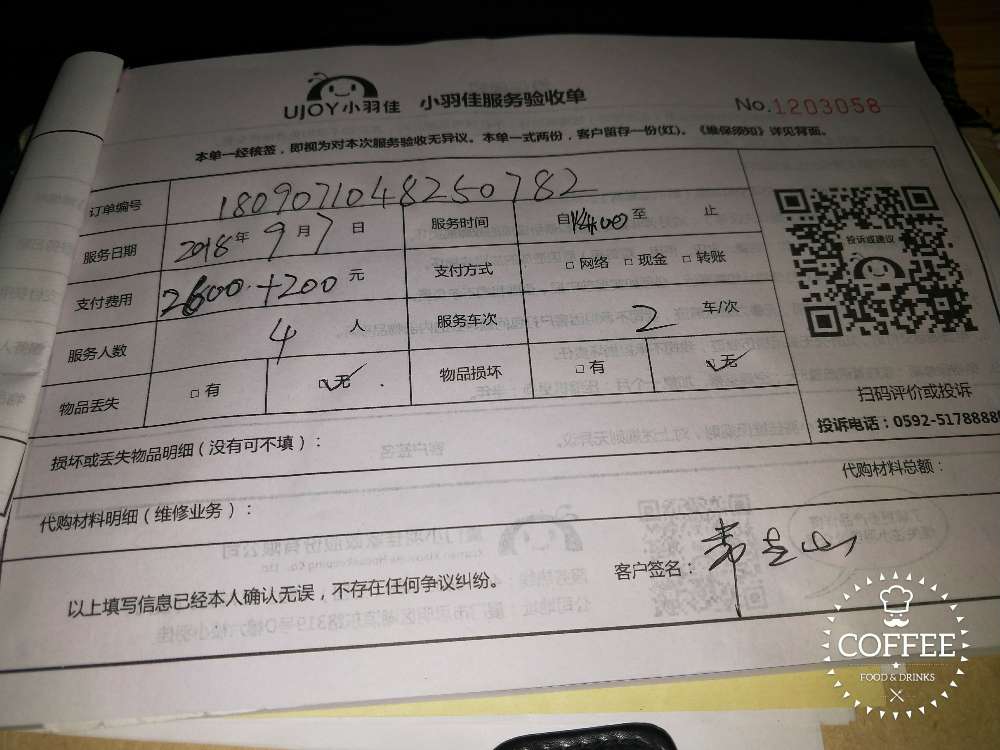 UJOY小羽佳 小羽佳服务验收单
No.1203058
本单一经核签，即视为对本次服务验收无异议。本单一式两份，客户留存一份(红)。《维保须知》详见背面。
订单编号 1809071048250782
服务日期 2018年9月7日 服务时间 自14:00至 止
支付费用 2600.+200元 支付方式 □网络 □现金 □转账
投诉或建议
服务人数 4人 服务车次 2车/次
物品丢失 □有 ☑无 物品损坏 □有 ☑无
扫码评价或投诉
投诉电话：0592-5178888
损坏或丢失物品明细（没有可不填）：
代购材料明细（维修业务）： 代购材料总额：
以上填写信息已经本人确认无误，不存在任何争议纠纷。 客户签名：
COFFEE
FOOD & DRINKS